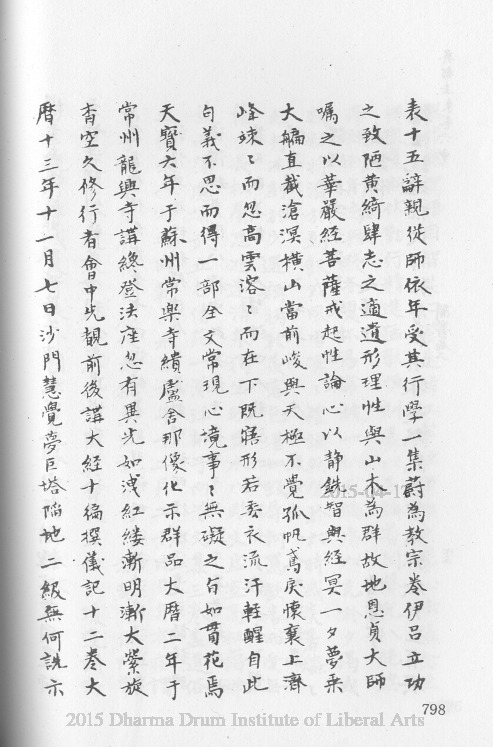 表十五辭親從師依年受具行學一集蔚為教宗卷伊呂立功
之致陋黃綺肆志之適遺形理性與山木為群故地恩貞大師
囑之以華嚴經菩薩戒起性論心以靜銑智與經冥一夕夢乘
大艑直截滄溟橫山當前峻與天極不覺孤帆鳶戾懷襄上濟
峰竦〻而忽高雲溶〻而在下既寤形若委衣流汗輕醒自此
句義不思而得一部全文常現心境事〻無礙之旨如貫花焉
天寶六年于蘇州常樂寺繢盧舍那像化示群品大曆二年于
常州龍興寺講終登法座忽有異光如洩紅縷漸明漸大縈旋
杳空久修行者會中先覩前後講大經十徧撰儀記十二卷大
曆十三年十一月七日沙門慧覺夢巨塔陷地二級無何說示
2015-04-17
798
2015 Dharma Drum Institute of Liberal Arts